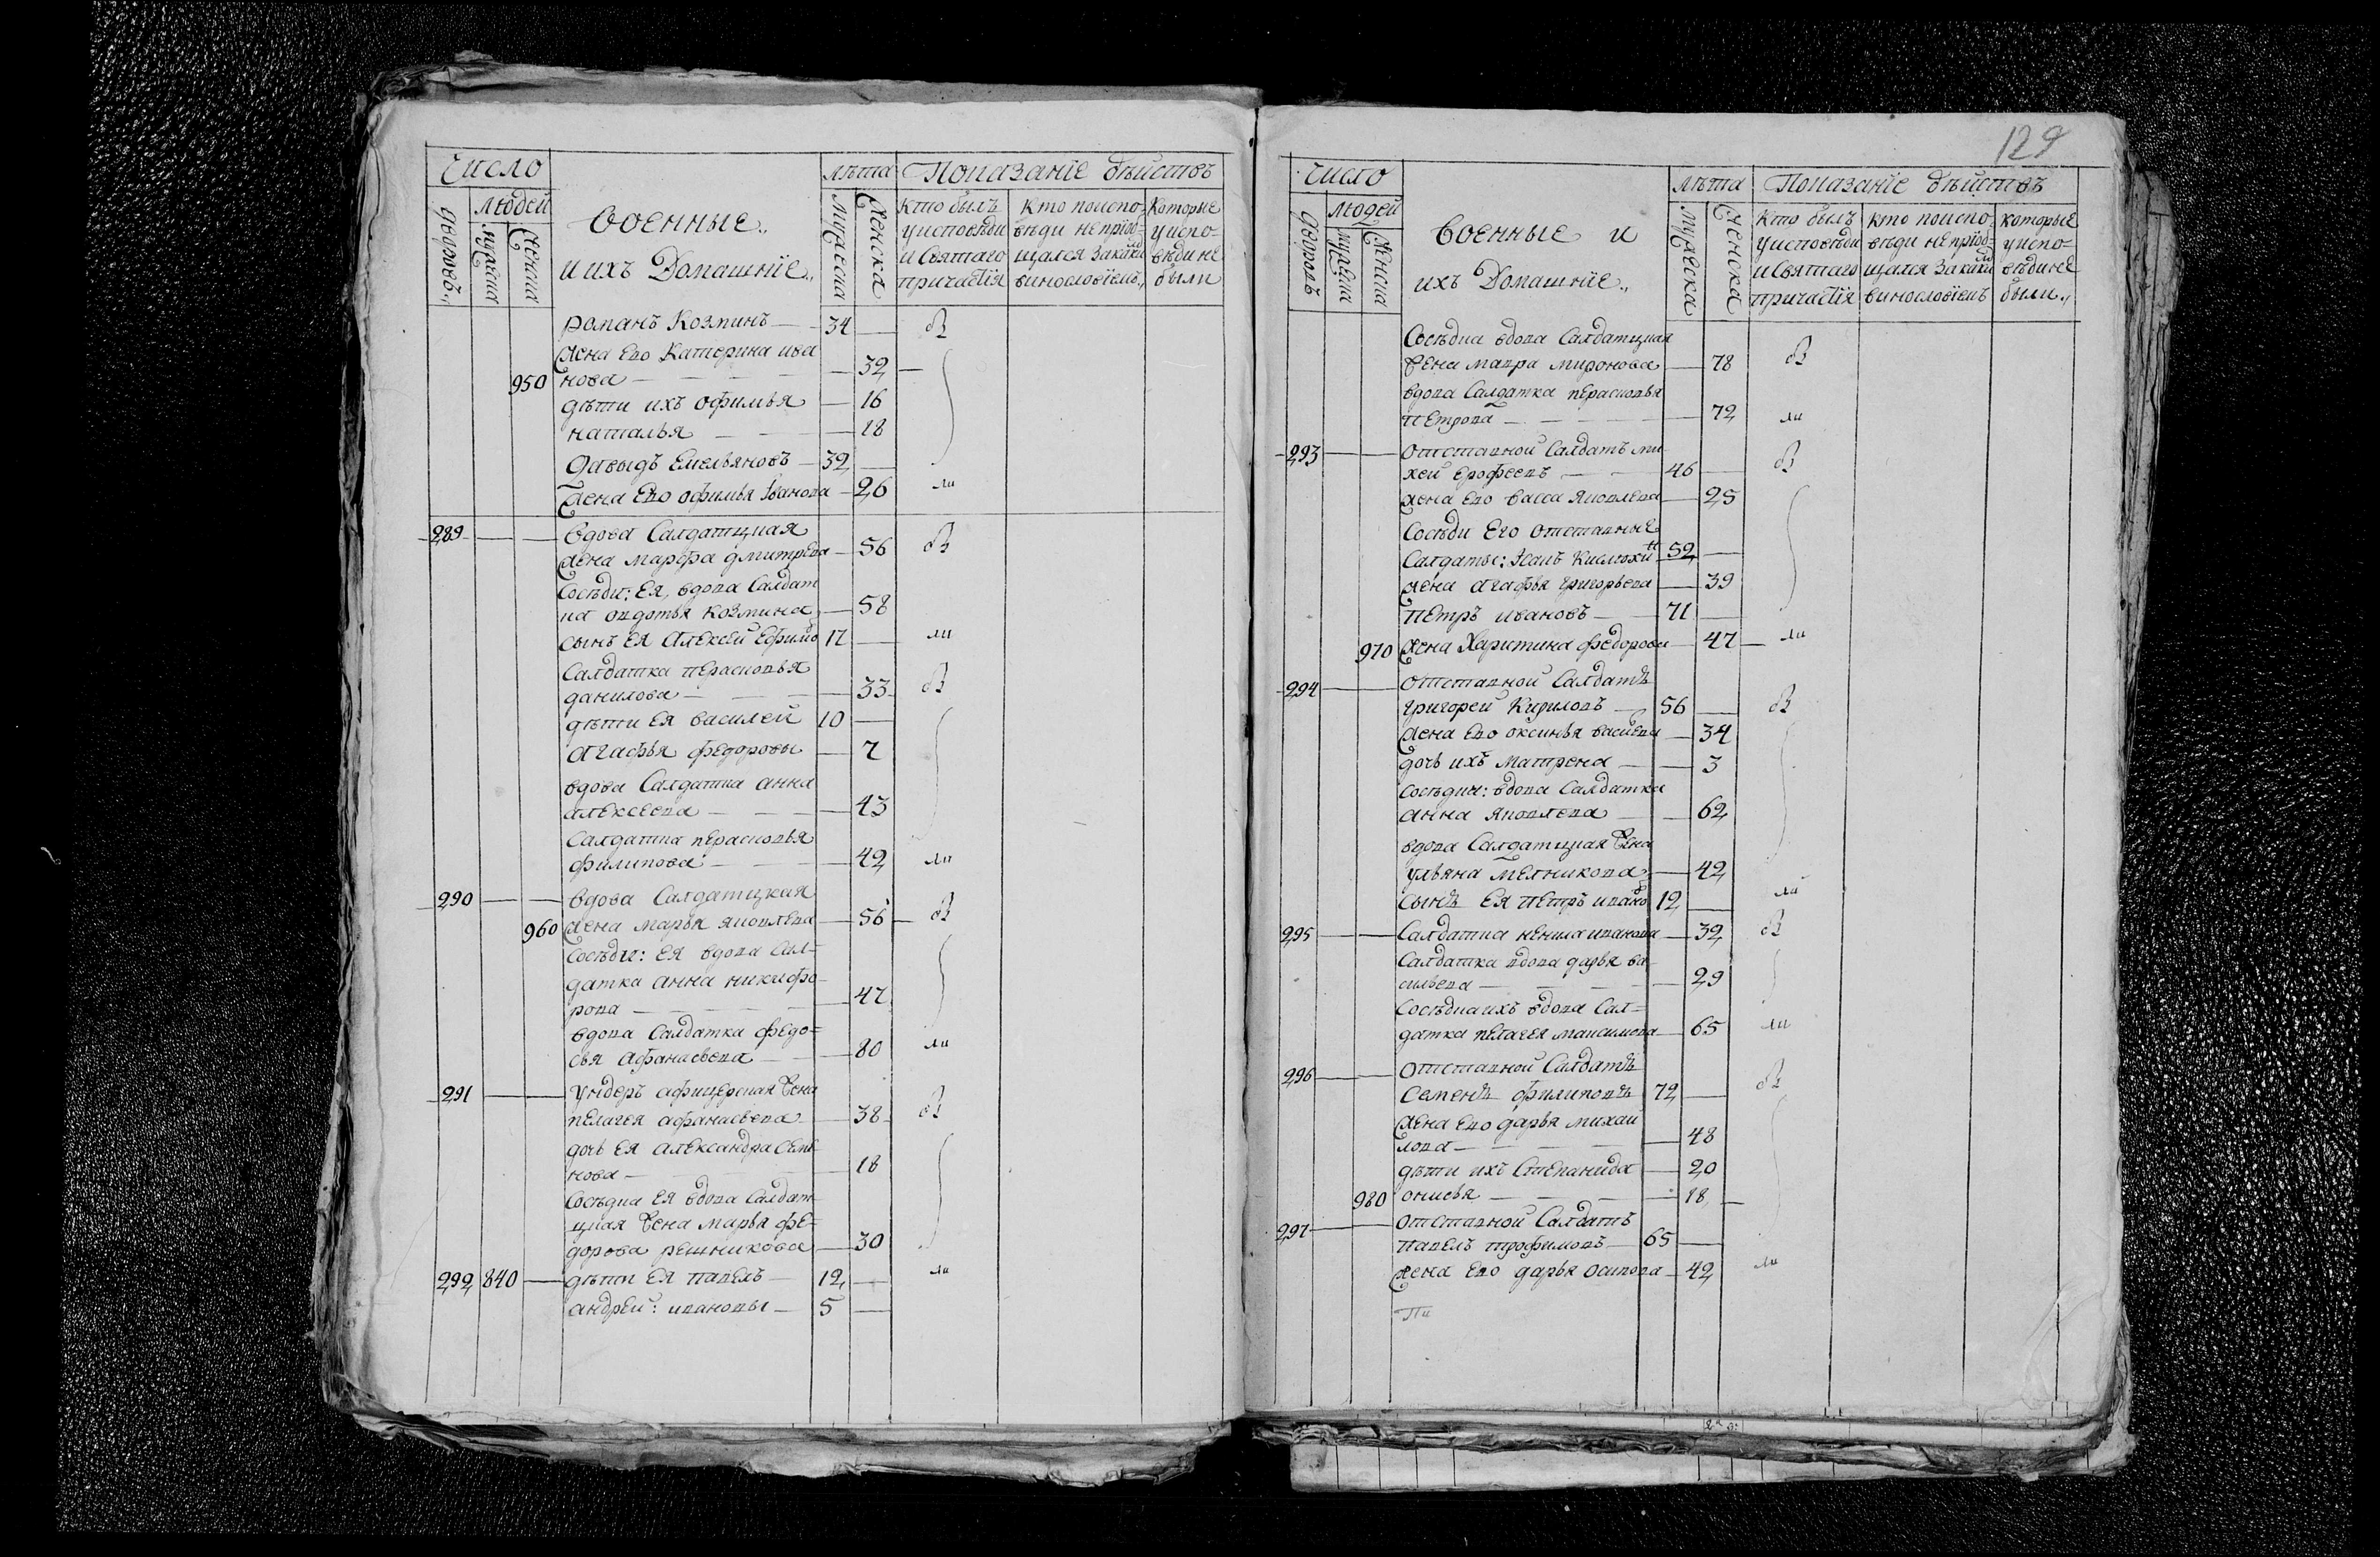 Число
Людей
Дворовъ
Мужска
Женска
Военные
и ихъ Домашнїе
лѣта
Мужеска
Женска
Показанїе дѣйствъ
Кто былъ
у исповѣди
и Святаго
причастїя
Кто по испо-
вѣди не прїоб-
щался За каким
винословїемъ
Которые
у испо-
вѣди не
были
Романъ Козминъ — 34
Жена Ево Катерина Ива
950 нова — 32
дѣти ихъ Офимья — 16
Наталья — 18
Давыдъ Емельяновъ — 32
Жена Ево Офимья Іванова — 26 ли
289 Вдова Салдатцкая
Жена Марфа Дмитрева — 56
Сосѣди: Ея, вдова Салдат
ка Овдотья Козмина — 58
сынъ Ея Алексей Ефимо 17 ли
Салдатка Перасковья
Данилова — 33
дѣти Ея Василей 10
Агафья Федоровы — 7
вдова Салдатка Анна
Алексеева — 43
Салдатка Перасковья
Филипова — 42 ли
290 Вдова Салдатцкая
960 Жена Марья Яковлева — 56
Сосѣди: Ея вдова Сал-
датка Анна Никифо
рова — 47
вдова Салдатка Федо-
сья Афанасьева — 80 ли
291 Ундеръ афицерская Жена
Пелагея Афанасьева — 38
дочь Ея Александра Семе
нова — 18
Сосѣдка Ея вдова Салдат
цкая Жена Марья Фе-
дорова Решникова — 30
292 840 дѣти Ея Павелъ — 12 ли
Андрей: Ивановы — 5
129
Число
Людей
Дворовъ
Мужеска
Женска
Военные и
ихъ Домашнїе
лѣта
Мужеска
Женска
Показанїе дѣйствъ
Кто былъ
у исповѣди
и Святаго
причастїя
Кто по испо
вѣди не прїоб-
щался За каким
винословїемъ
которые
у испо-
вѣди не
были
Сосѣдка вдова Салдатцкая
Жена Мавра Миронова — 78
вдова Салдатка Перасковья
Петрова — 72 ли
293 Отставной Салдатъ Ми
хей Ерофеевъ — 46
Жена Ево Васса Яковлева — 25
Сосѣди Его Отставные
Салдаты: Іванъ Кислюхин 52
Жена Агафья Григорьева — 39
Петръ Ивановъ — 71
970 Жена Харитина Федорова — 47 ли
294 Отставной Салдатъ
Григорей Кириловъ — 56
Жена Ево Оксинья Василева — 34
дочь ихъ Матрена — 3
Сосѣдки: вдова Салдатка
Анна Яковлева — 62
вдова Салдатцкая Жена
Ульяна Мелникова — 42
Сынъ Ея Петръ Ивано 12 ли
295 Салдатка Ненила Иванова — 32
Салдатка вдова Дарья Ва
сильева — 29
Сосѣдка ихъ вдова Сал-
датка Пелагея Максимова — 65 ли
296 Отставной Салдатъ
Семенъ Филиповъ 72
Жена Ево Дарья Михаи
лова — 48
дѣти ихъ Степанида — 20
980 Онисья — 18
297 Отставной Салдатъ
Павелъ Трофимовъ — 65
Жена Ево Дарья Осипова — 42 ли